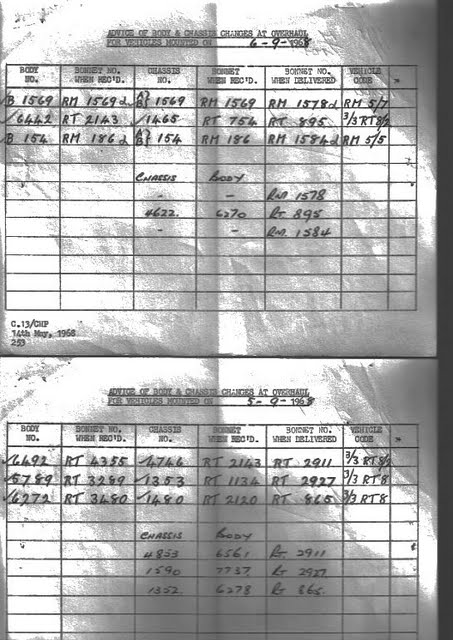 ADVICE OF BODY & CHASSIS CHANGES AT OVERHAUL
FOR VEHICLES MOUNTED ON 6-9-1968
BODY NO. BONNET NO. WHEN REC'D. CHASSIS NO. BONNET WHEN REC'D. BONNET NO. WHEN DELIVERED VEHICLE CODE
B 1569 RM 1569 A/B 1569 RM 1569 RM 1578 RM 5/7
6442 RT 2143 1465 RT 754 RT 895 3/3 RT 8/2
B 154 RM 186 A/B 154 RM 186 RM 1584 RM 5/5
CHASSIS BODY
- - RM 1578
4622 6270 RT 895
- - RM 1584
C.13/CHP
14th May, 1968
253
ADVICE OF BODY & CHASSIS CHANGES AT OVERHAUL
FOR VEHICLES MOUNTED ON 5-9-1968
BODY NO. BONNET NO. WHEN REC'D. CHASSIS NO. BONNET WHEN REC'D. BONNET NO. WHEN DELIVERED VEHICLE CODE
6492 RT 4355 4746 RT 2143 RT 2911 3/3 RT 8/2
5789 RT 3289 1353 RT 1134 RT 2927 3/3 RT 8
6272 RT 3480 1480 RT 2120 RT 865 3/3 RT 8
CHASSIS BODY
4853 6561 RT 2911
1590 7737 RT 2927
1352 6278 RT 865